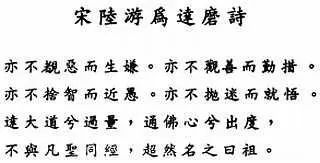 宋陸游為達磨詩
亦不覩惡而生嫌。亦不觀善而勤措。
亦不捨智而近愚。亦不拋迷而就悟。
達大道兮過量，通佛心兮出度，
不與凡聖同經，超然名之曰祖。